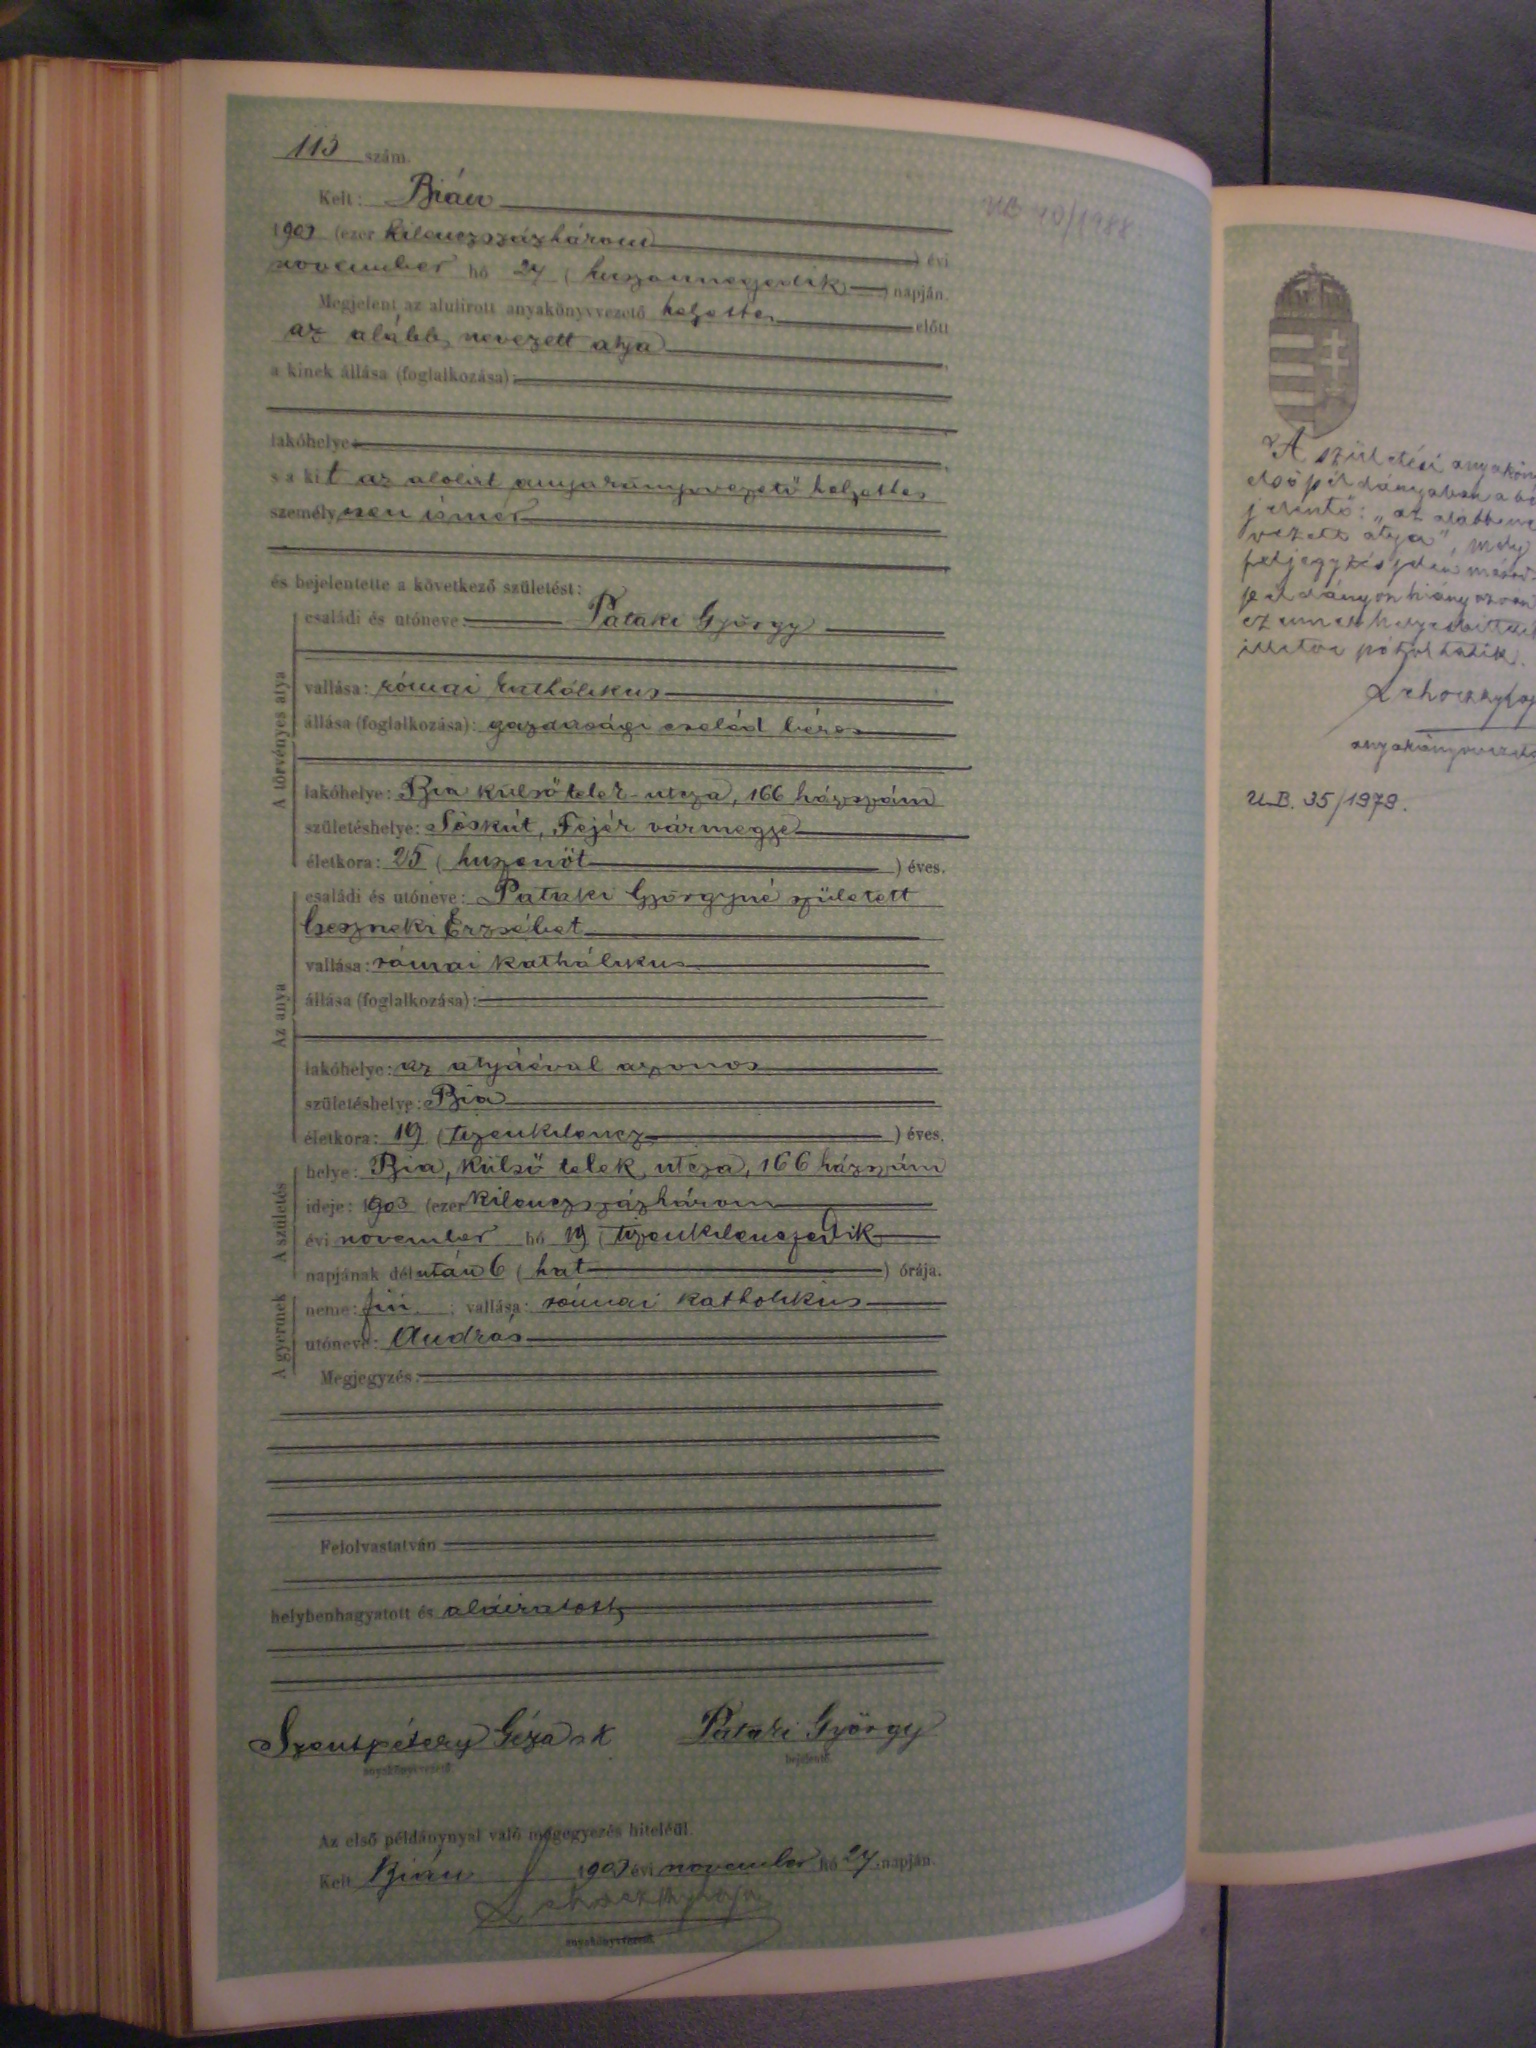 113 szám.
Kelt: Bián
1903 (ezer kilenczszázhárom) évi
november hó 24 (huszonnegyedik) napján.
Megjelent az alulirott anyakönyvvezető helyettes előtt
az alább nevezett atyja
a kinek állása (foglalkozása):
lakóhelye
s a kit az alolirt anyakönyvvezető helyettes
személyesen ismer
és bejelentette a következő születést:
A törvényes atya
családi és utóneve: Pataki György
vallása: római katholikus
állása (foglalkozása): gazdasági cseléd béres
lakóhelye: Bia külső telek utcza, 166 házszám
születéshelye: Sóskút, Fejér vármegye
életkora: 25 (huszonöt) éves.
Az anya
családi és utóneve: Pataki Györgyné született
Cseszneki Erzsébet
vallása: római katholikus
állása (foglalkozása):
lakóhelye: az atyáéval azonos
születéshelye: Bia
életkora: 19 (tizenkilencz) éves.
A születés
helye: Bia, külső telek utcza, 166 házszám
ideje: 1903 (ezer kilenczszázhárom
évi november hó 19 (tizenkilenczedik
napjának délután 6 (hat) órája.
A gyermek
neme: fiú; vallása: római katholikus
utóneve: András
Megjegyzés:
Felolvastatván
helybenhagyatott és aláiratott
Szentpétery Géza s k Pataki György
anyakönyvvezető bejelentő
Az első példánynyal való megegyezés hiteléül.
Kelt Bián 1903 évi november hó 24 napján.
anyakönyvvezető
UB 10/1988
A születési anyakön
első példányában a be
jelentő: „az alább ne
vezett atyja”, mely
feljegyzés jelen másod
példányon hiányozván
ezennel helyesbittetik
illetve pótoltatik.
anyakönyvvezető
U.B. 35/1979.